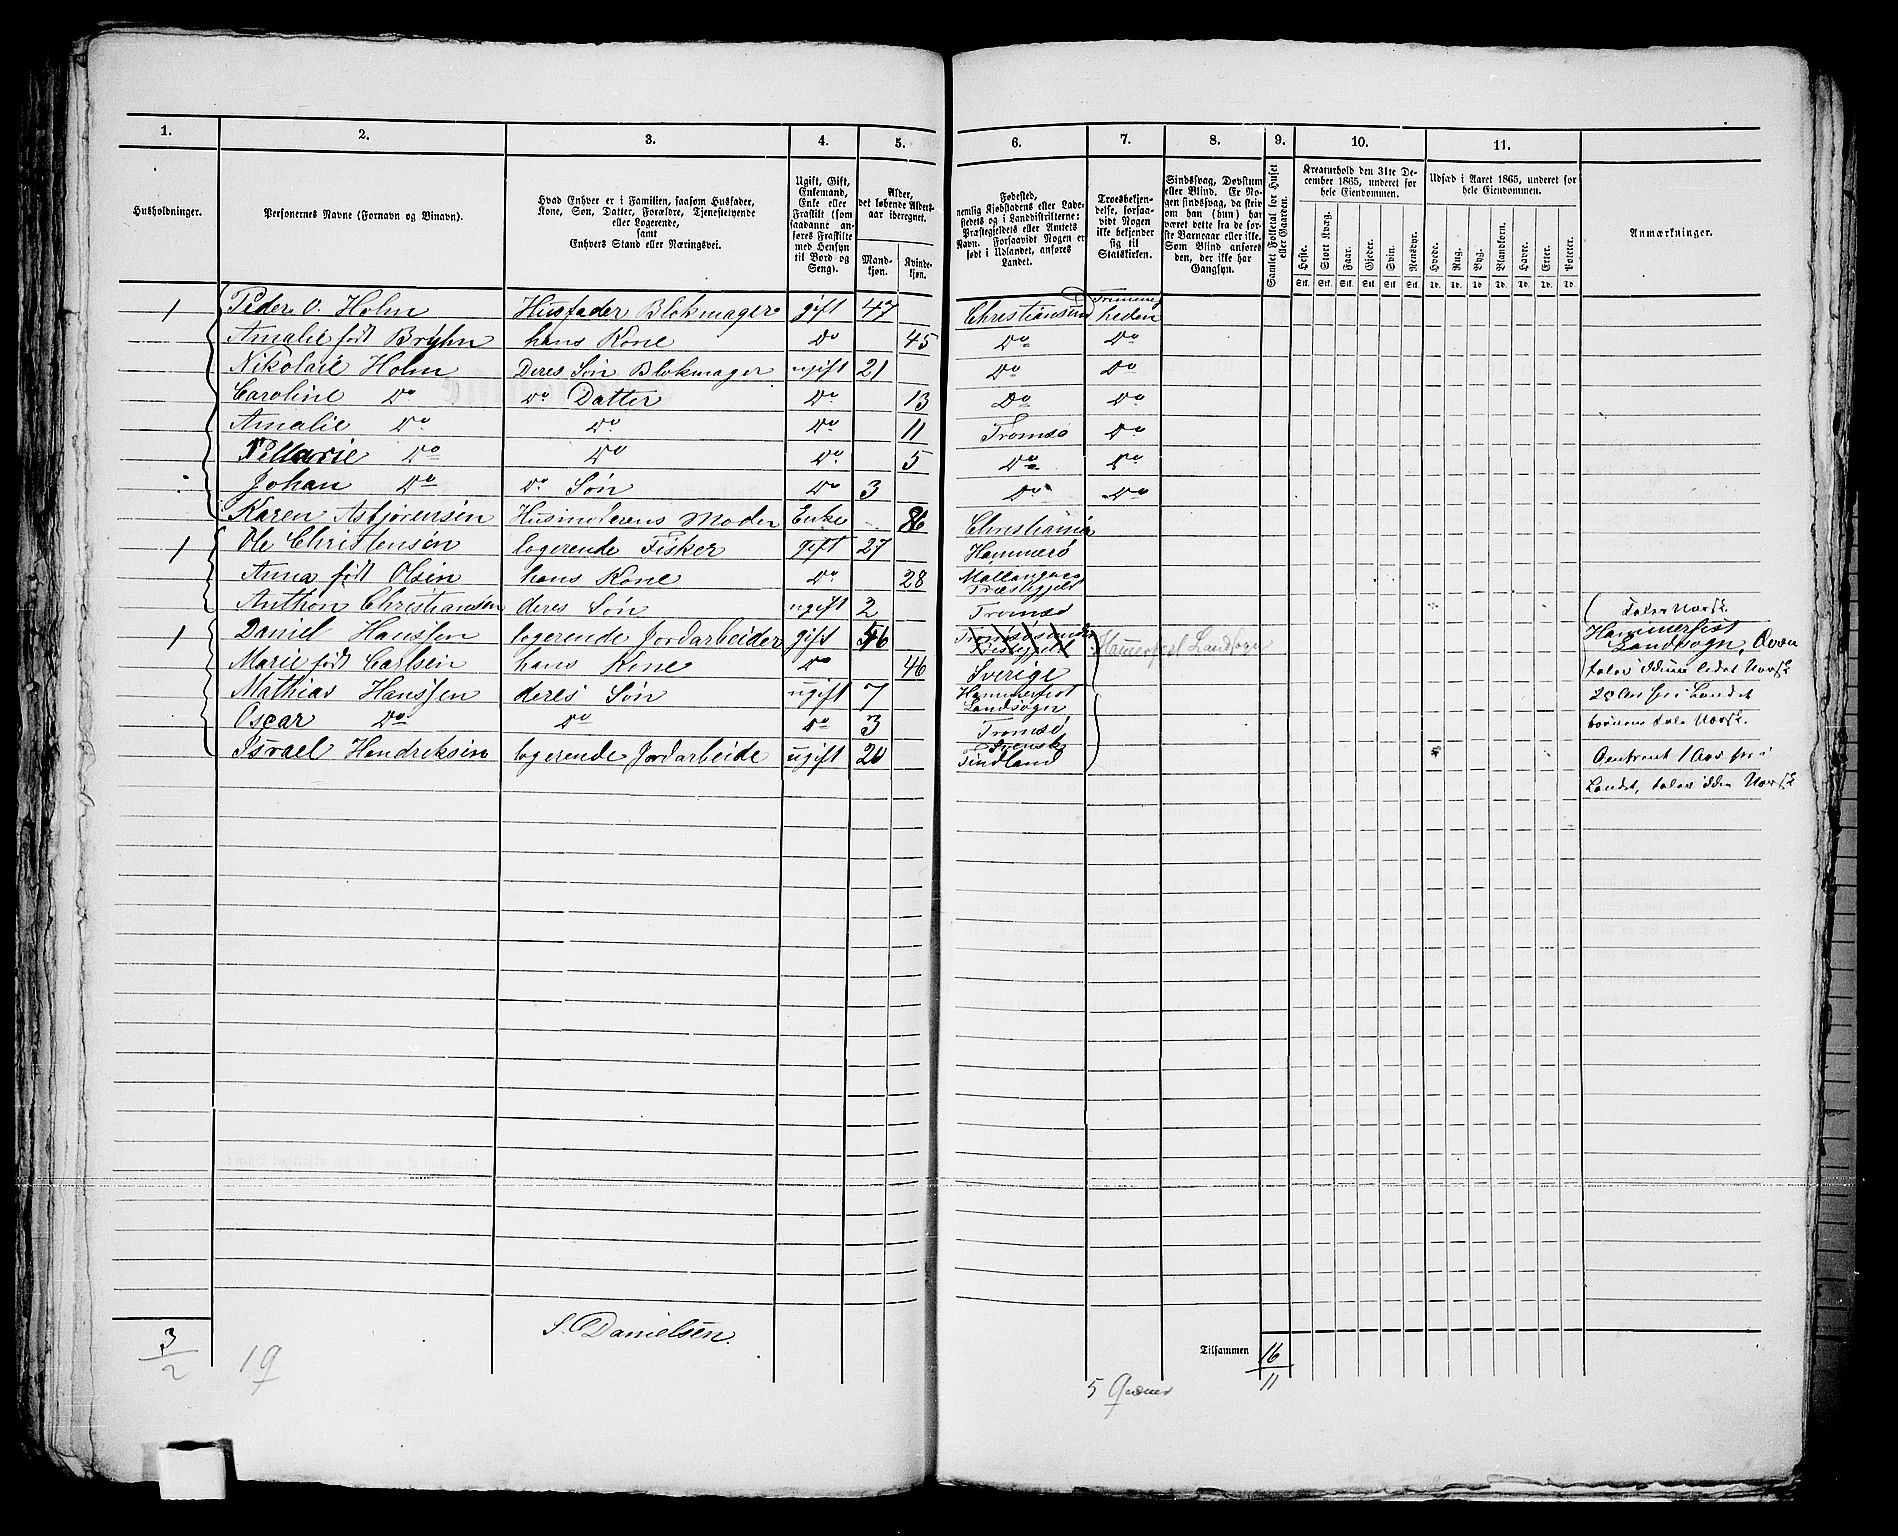 1. 2. 3. 4. 5. 6. 7. 8. 9. 10. 11.
Husholdninger.
Personernes Navne (Fornavn og Binavn).
Hvad Enhver er i Familien, saasom Husfader,
Kone, Søn, Datter, Forældre, Tjenestetyende
eller Logerende,
samt
Enhvers Stand eller Næringsvei.
Ugift, Gift,
Enkemand,
Enke eller
Fraskilt (som
saadanne anføres
Fraskilte
med Hensyn
til Bord og
Seng).
Alder,
det løbende Alders-
aar iberegnet.
Mand-
kjøn.
Kvinde-
kjøn.
Fødested,
nemlig Kjøbstadens eller Lade-
stedets og i Landdistrikterne:
Præstegjeldets eller Amtets
Navn. Forsaavidt Nogen er
født i Udlandet, anføres
Landet.
Troesbekjen-
delse, forsaa-
vidt Nogen
ikke bekjender
sig til
Statskirken.
Sindssvag, Døvstum
eller Blind. Er No-
gen sindssvag, da skrives
om han (hun) har
været dette fra de før-
ste Barneaar eller ikke.
Som Blind anføres
den, der ikke har
Gangsyn.
Samlet Folketal for Huset
eller Gaarden.
Kreaturhold den 31te De-
cember 1865, underet for
hele Eiendommen.
Heste. Stort Kvæg. Faar. Gjeder. Svin. Rensdyr.
Stk. Stk. Stk. Stk. Stk. Stk.
Udsæd i Aaret 1865, underet for
hele Eiendommen.
Hvede. Rug. Byg. Blandkorn. Havre. Erter. Poteter.
Td. Td. Td. Td. Td. Td. Td.
Anmærkninger.
1 Peder O. Holm Husfader Blokmager gift 47 Christiansund
Amalie født Bryhn hans Kone Do 45 Do Do
Nikolai Holm Deres Søn Blokmager ugift 21 Do Do
Caroline Do Do Datter Do 13 Do Do
Amalie Do Do Do 11 Tromsø Do
Do Do Do 5 Do Do
Johan Do Do Søn Do 3 Do Do
Karen Asbjørensen Husmoderens Moder Enke 86
1 Ole Christensen logerende Fisker gift 27 Hammerø
Anna født Olsen hans Kone Do 28
Præstegjeld
Anthon Christiansen deres Søn ugift 2 Tromsø taler Norsk
1 Daniel Hanssen logerende Jordarbeider gift 56 Tromsøsundets Præstegjeld Hammerfest Landsogn Hammerfest
Landsogn,
Marie født Carlsen hans Kone Do 46 Sverige
Mathias Hanssen deres Søn ugift 7 Hammerfest
Landsogn
Oscar Do Do Do 3 Tromsø
Israel Hendriksen logerende Jordarbeide ugift 20 Svensk
Findland
Landet, taler Norsk
S. Danielsen.
3
2
19
Tilsammen 16
11
5